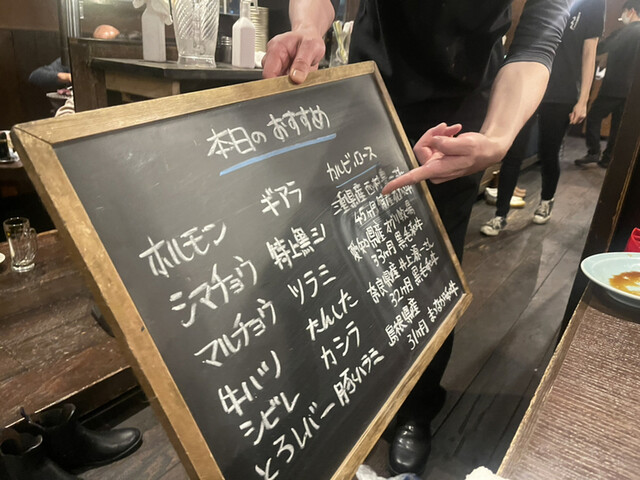 本日のおすすめ
ホルモン
シマチョウ
マルチョウ
牛ハツ
シビレ
とろレバー
ギアラ
特上黒シ
ツラミ
たんした
カシラ
豚ハラミ
カルビ、ロース
三重県産
45ヶ月
愛知県産
33ヶ月 黒毛和牛
奈良県産 井上源一さん
32ヶ月 黒毛和牛
島根県産
31ヶ月